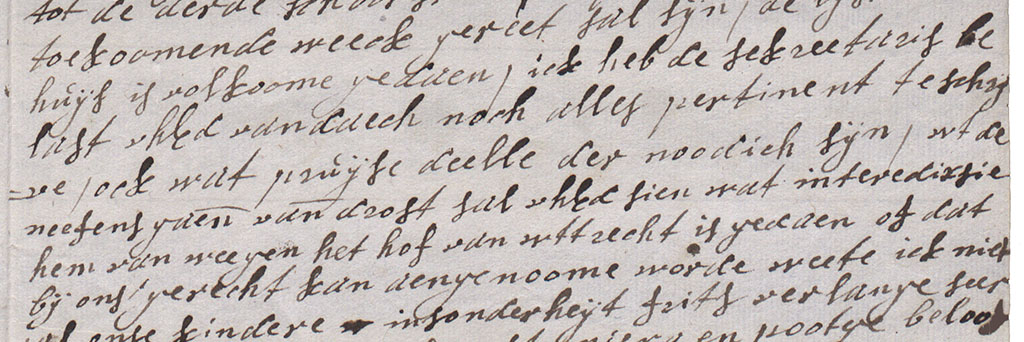 tot de derde
toekoomende weeck gereet sal sijn, de
huijs is volkoome gedaen, ick heb de sekreetaris be
last uhEd vandaech noch alles pertinent te schrij
ve, ock wat pruijse deelle der noodich sijn, wt de
neefensgaen van drost sal uhEd sien wat interedixsie
hem van weegen het hof van wttrecht is gedaen of dat
bij ons gerecht kan aengenoome worde weete ick niet
onse kindere insonderheijt frits verlange seer
en pootge beloo